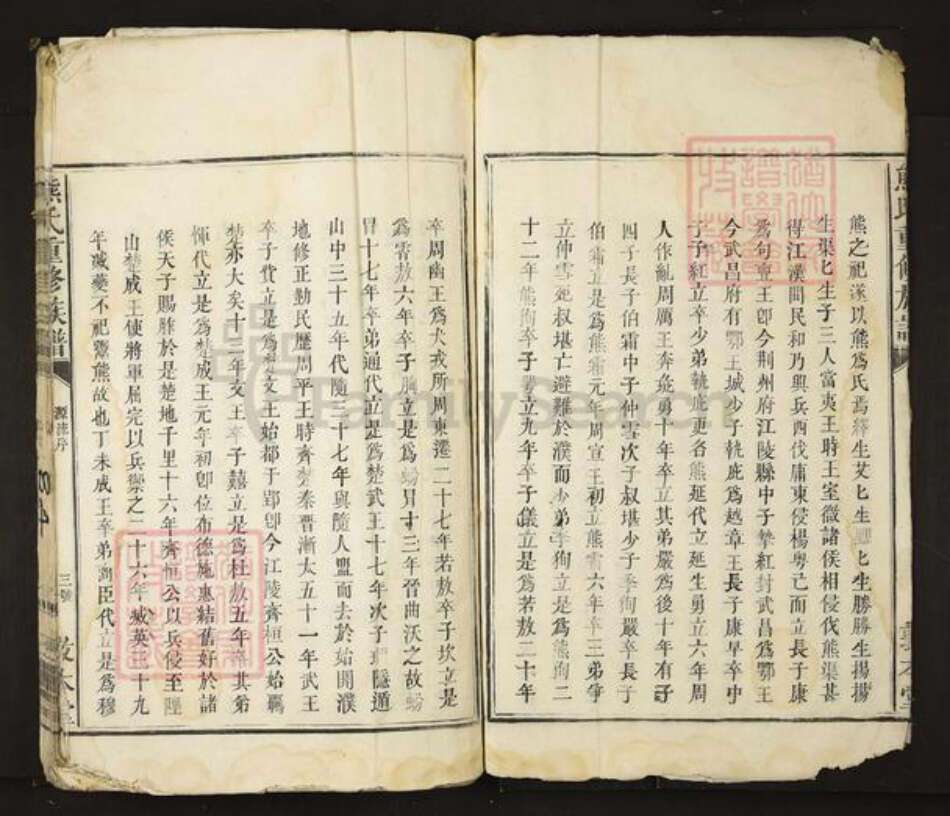 熊之祀遂以熊為氏焉繹生艾匕生䵣匕生勝勝生揚揚
生渠匕生子三人當夷王時王室微諸侯相侵伐熊渠甚
得江漢間民和乃興兵西伐庸東侵楊粵己而立長子康
為句亶王卽今荆州府江陵縣中子摯紅封武昌為鄂王
今武昌府有鄂王城少子執疵為越章王長子康早卒中
子子紅立卒少弟執疵更名熊延代立延生勇立六年周
人作亂周厲王奔彘勇十年卒立其弟嚴為後十年有子
四子長子伯霜中子仲雪次子叔堪少子季徇嚴卒長子
伯霜立是為熊霜元年周宣王初立熊霜六年卒三弟爭
立仲雪死叔堪亡避難於濮而少弟季徇立是為熊徇二
十二年熊徇卒子咢立九年卒子儀立是為若敖二十年
卒周幽王為犬戎所周東遷二十七年若敖卒子坎立是
為霄敖六年卒子眴立是為蚡冒十三年晉曲沃之故蚡
冒十七年卒弟通代立是為楚武王十七年次子瑕隱遁
山中三十五年代隨三十七年與隨人盟而去於始開濮
地修正勤民歷周平王時齊楚秦晉漸大五十一年武王
卒子貲立是為楚文王始都于郢卽今江陵齊桓公始霸
楚亦大矣十二年文王卒子囏立是為杜敖五年 其第
惲代立是為楚成王元年初卽位布德施惠結舊好於諸
侯天子賜胙於是楚地千里十六年齊恒公以兵侵至陘
山楚成王使將軍屈完以兵禦之二十六年滅英三十九
年滅夔不祀鬻熊故也丁未成王卒弟 臣代立是為穆
熊氏重修族譜
源流序
三號
敦本堂
FamilySearch